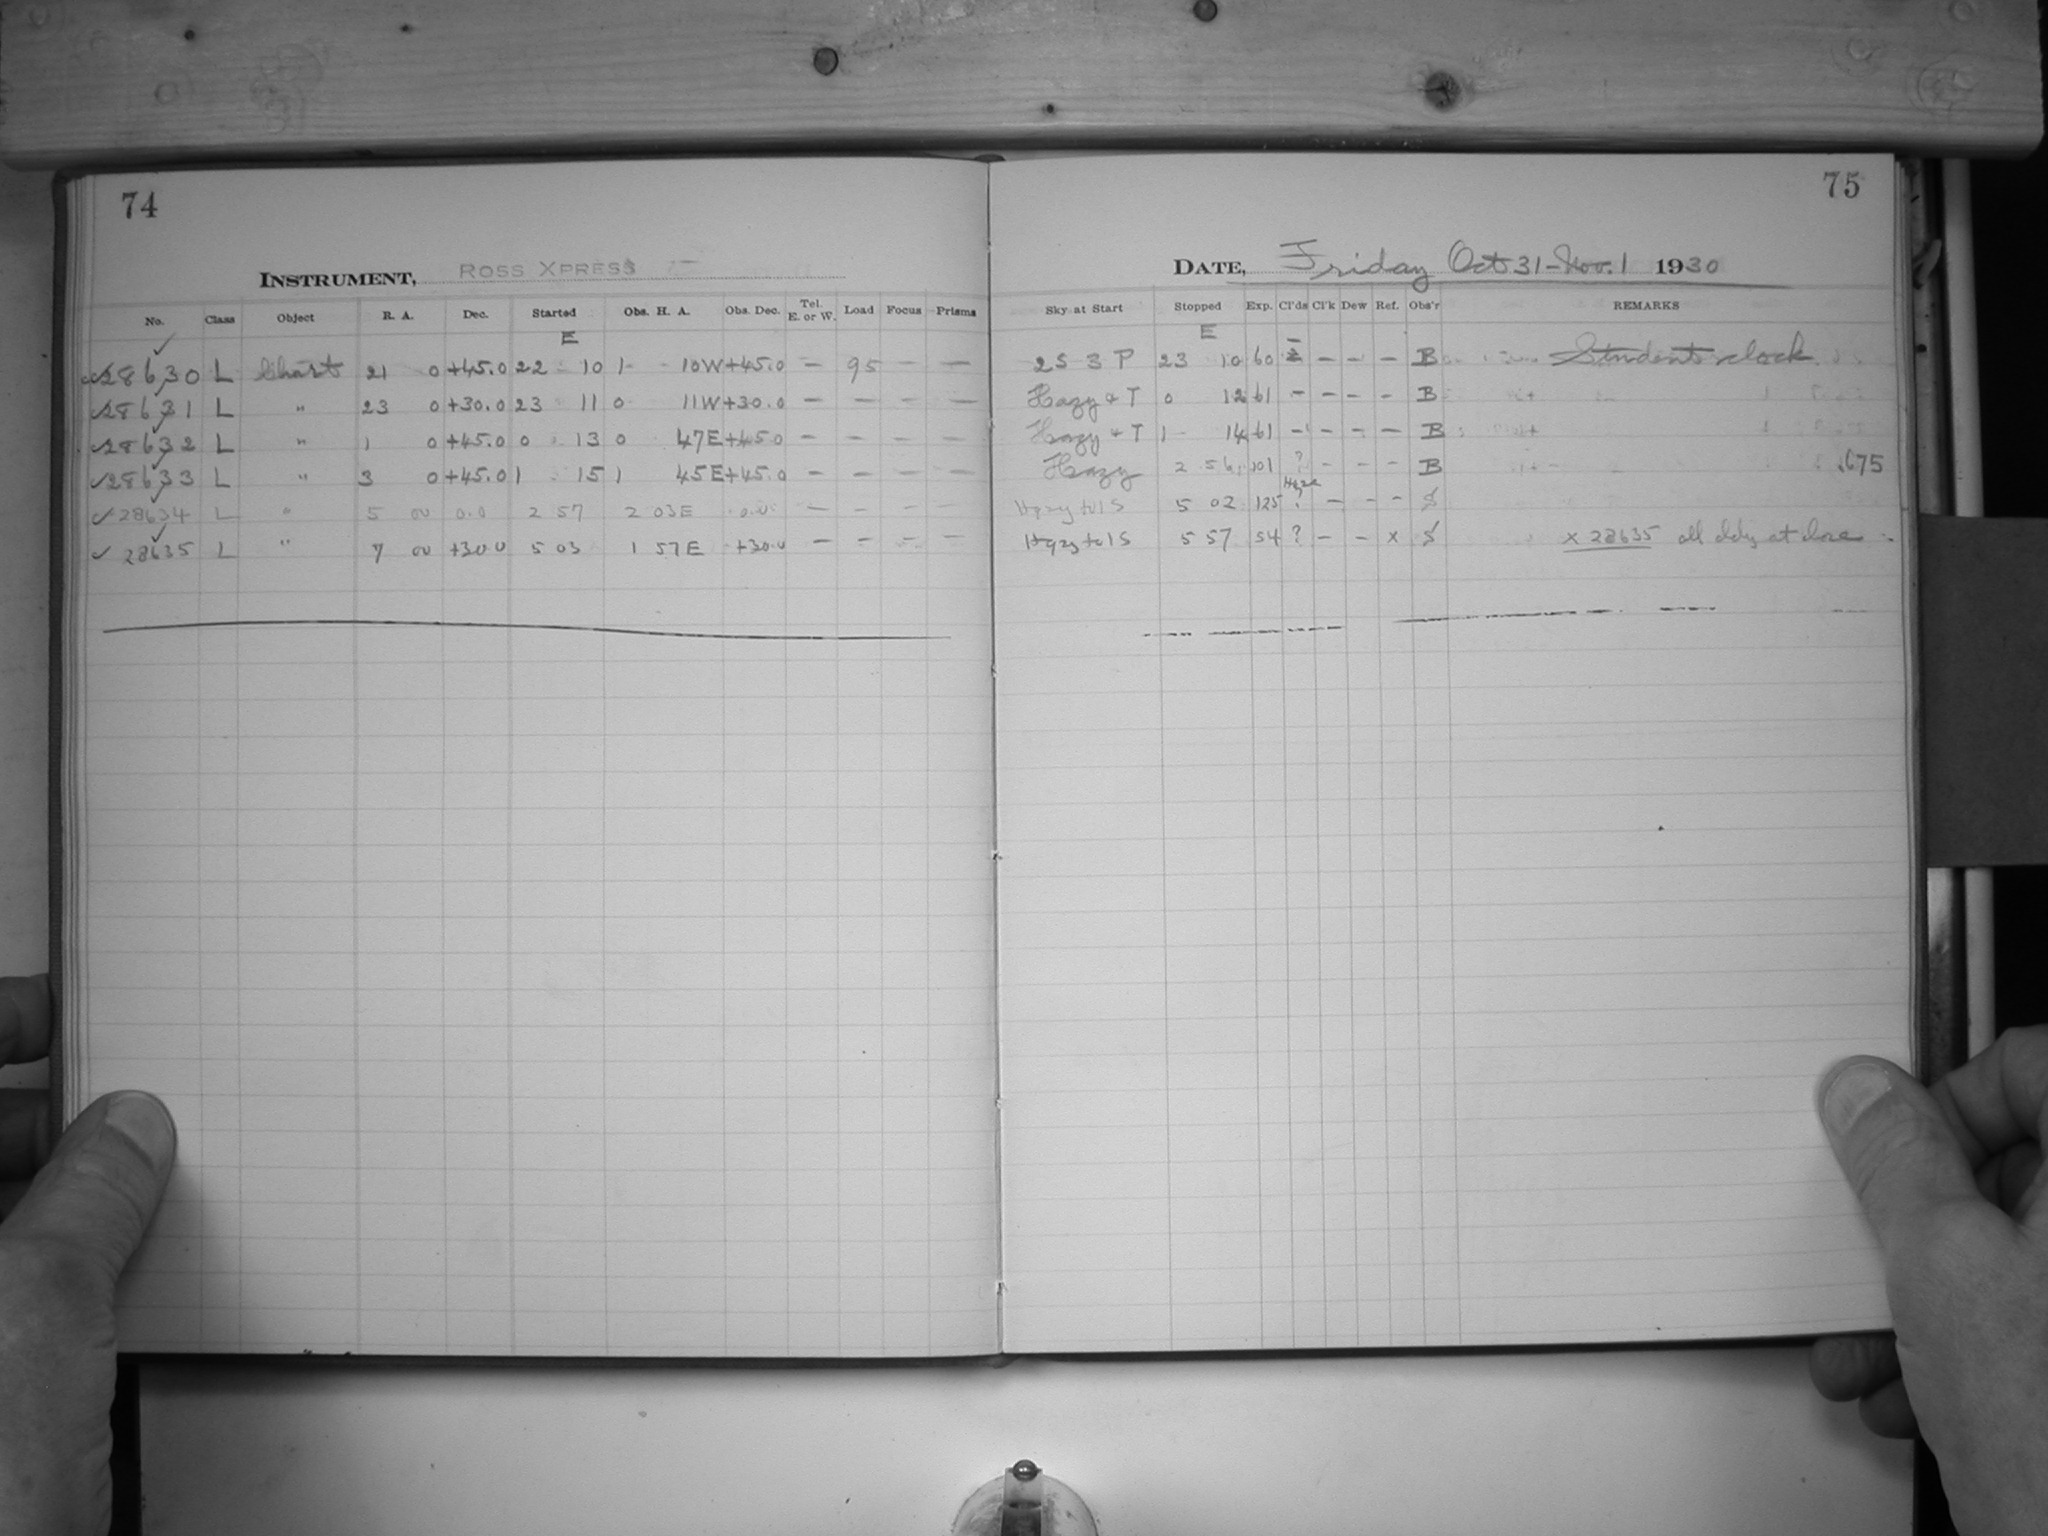 74
INSTRUMENT, ROSS XPRESS
No. Class Object R. A. Dec. Started Obs. H. A. Obs. Dec. Tel. E. or W. Load Focus Prisms
E
28630 L Chart 21 0 +45.0 22 10 1 10W +45.0 — 95 — —
28631 L " 23 0 +30.0 23 11 0 11W +30.0 — — — —
28632 L " 1 0 +45.0 0 13 0 47E +45.0 — — — —
28633 L " 3 0 +45.0 1 15 1 45E +45.0 — — — —
28634 L " 5 00 0.0 2 57 2 03E 0.0 — — — —
28635 L " 7 00 +30.0 5 03 1 57E +30.0 — — — —
75
DATE, Friday Oct 31-Nov. 1 1930
Sky at Start Stopped Exp. Cl'ds Cl'k Dew Ref. Obs'r REMARKS
E
2S 3 P 23 10 60 — — — B Students clock
Hazy & T 0 12 61 — — — — B
Hazy & T 1 14 61 — — — — B
Hazy 2 56 101 ? — — — B .675
Hazy to 1S 5 02 125 Haze ? — — — S
Hazy to 1S 5 57 54 ? — — x S x 28635 all cldy at close